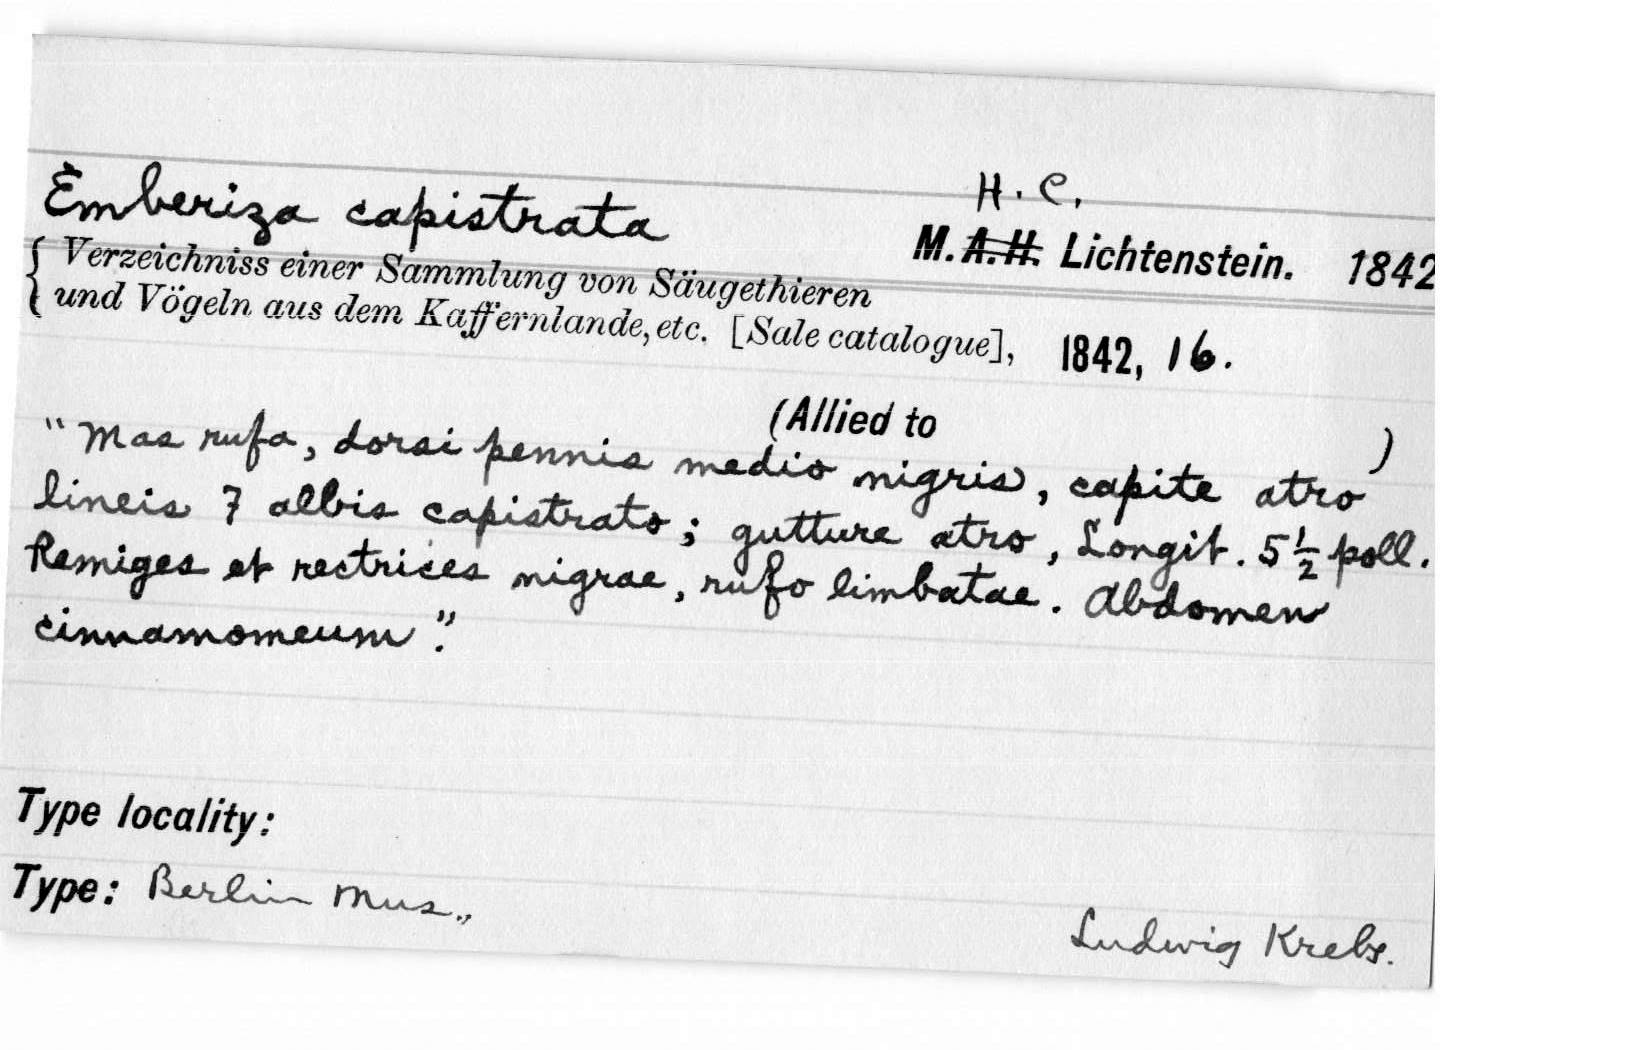 Emberiza capistrata
H. C.
M. A. H. Lichtenstein. 1842
Verzeichniss einer Sammlung von Säugethieren
und Vögeln aus dem Kaffernlande, etc. [Sale catalogue], 1842, 16.
(Allied to )
"Mas rufa, dorsi pennis medio nigris, capite atro
lineis 7 albis capistrato; gutture atro, Longit. 5½ poll.
Remiges et rectrices nigrae, rufo limbatae. Abdomen
cinnamomeum".
Type locality:
Type: Berlin Mus.,
Ludwig Krebs.